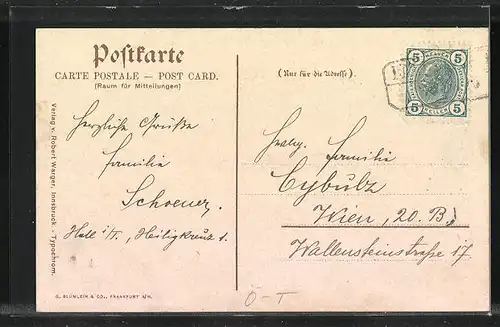 Postkarte
CARTE POSTALE — POST CARD.
(Raum für Mitteilungen)
(Nur für die Adresse)
5 5
5 5
HELLER
Herzliche Grüße
Familie
Schoener.
Hall i/T., Heiligkreuz 1.
Familie
Cybulz
Wien, 20. B.
Wallensteinstraße 17.
Verlag v. Robert Warger, Innsbruck. - Typochrom.
G. BLÜMLEIN & CO., FRANKFURT A/M.
Ö-T